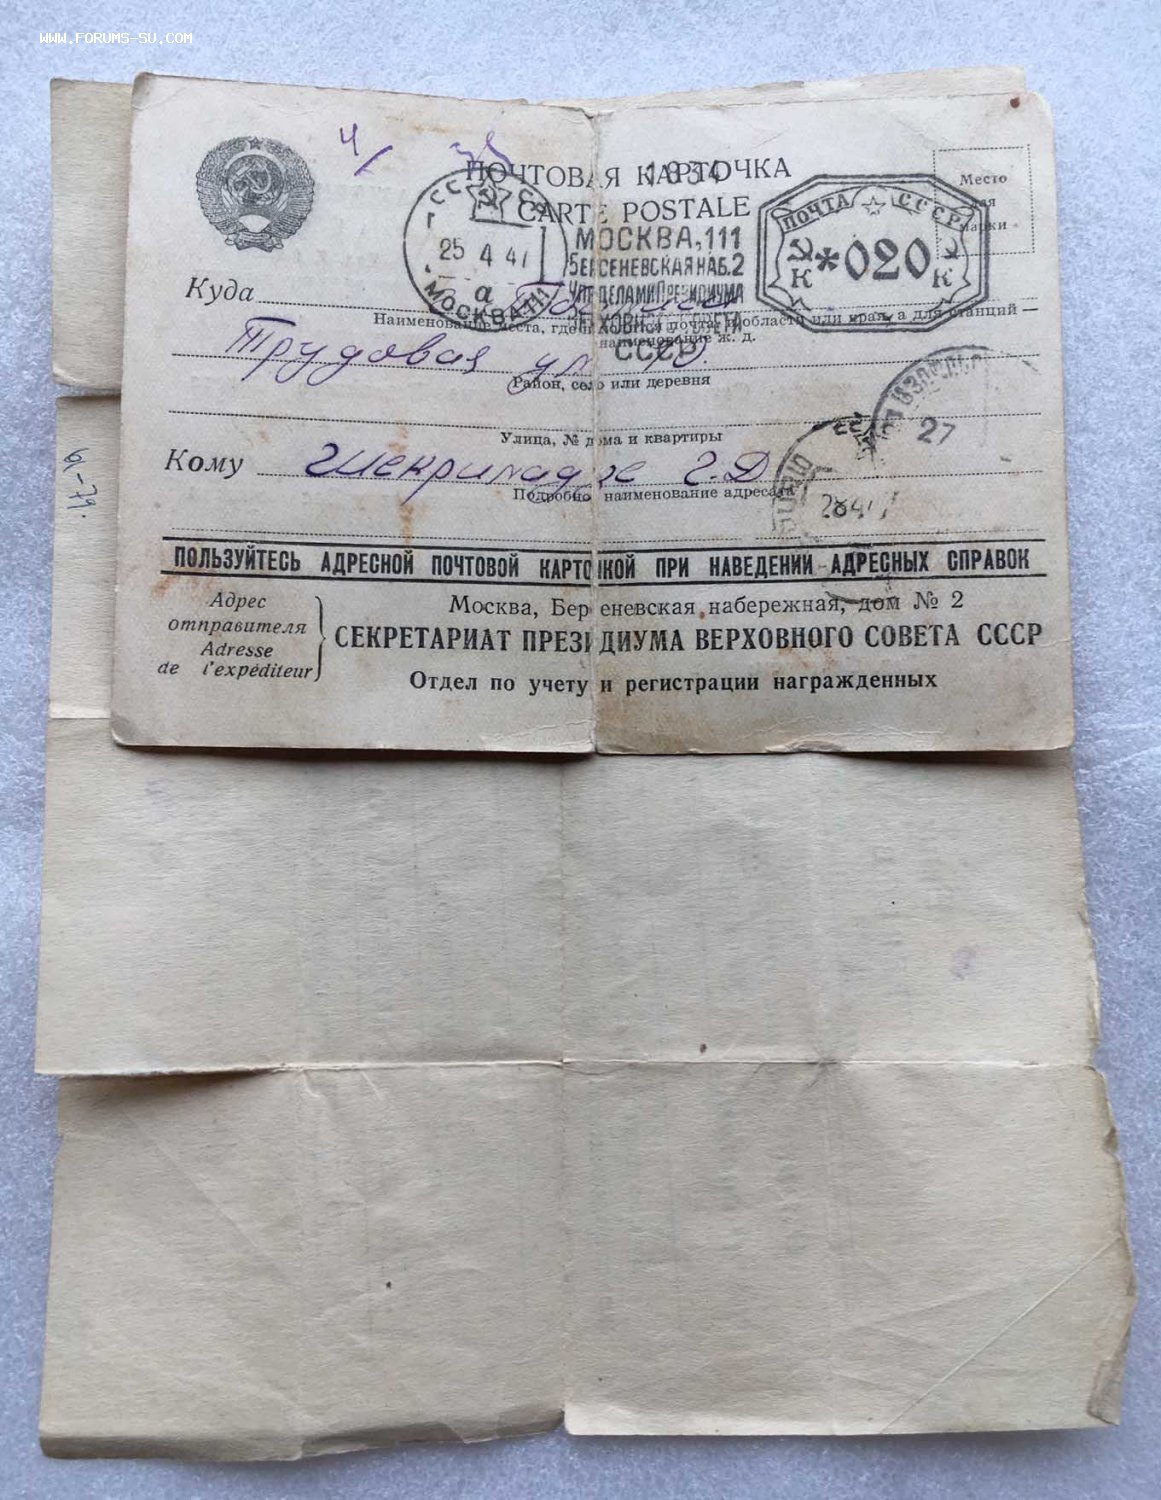 WWW.FORUMS-SU.COM
ПОЧТОВАЯ КАРТОЧКА
CARTE POSTALE
1834
СССР
25 4 47
а
МОСКВА 111
МОСКВА, 111
БЕРСЕНЕВСКАЯ НАБ. 2
УПР. ДЕЛАМИ ПРЕЗИДИУМА
ВЕРХОВНОГО СОВЕТА
СССР
ПОЧТА СССР
К *020 К
Место
для
марки
Куда
Наименование места, где находится почта, и области или края, а для станций —
наименование ж. д.
Трудовая ул
Район, село или деревня
Улица, № дома и квартиры
Кому
Г. Д.
Подробное наименование адресата
27
28 4 47
ПОЛЬЗУЙТЕСЬ АДРЕСНОЙ ПОЧТОВОЙ КАРТОЧКОЙ ПРИ НАВЕДЕНИИ АДРЕСНЫХ СПРАВОК
Адрес
отправителя
Adresse
de l'expéditeur
Москва, Берсеневская набережная, дом № 2
СЕКРЕТАРИАТ ПРЕЗИДИУМА ВЕРХОВНОГО СОВЕТА СССР
Отдел по учету и регистрации награжденных